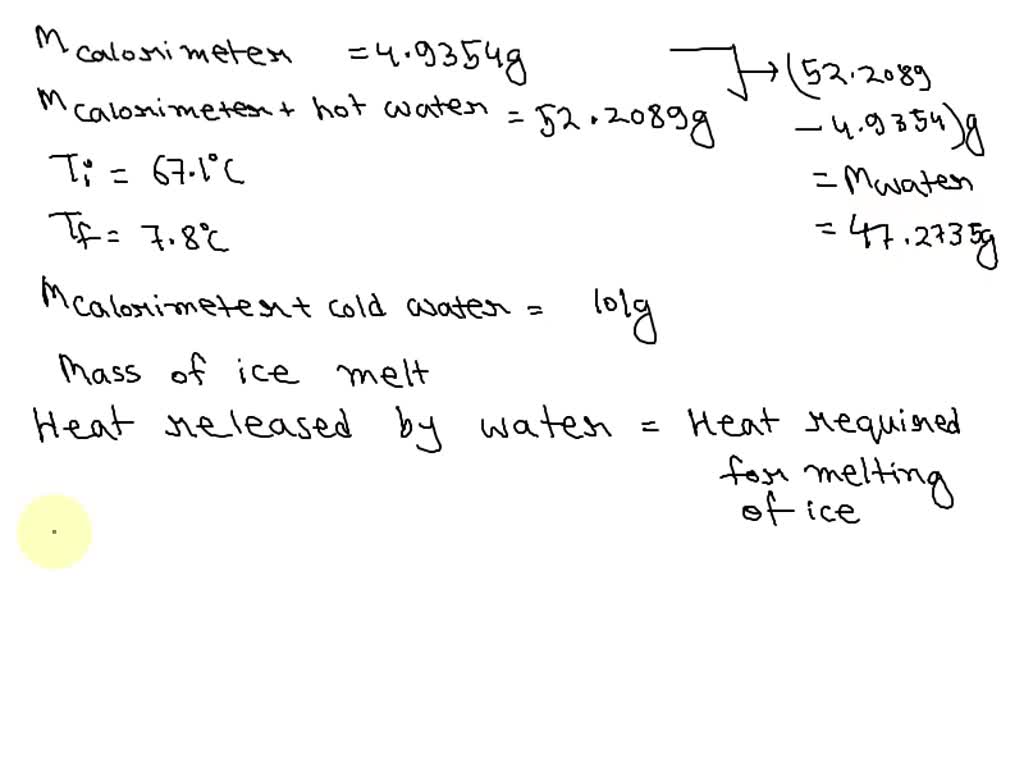 Mcalorimeter = 4.9354g
Mcalorimeter + hot water = 52.2089g
Ti = 67.1°C
Tf = 7.8°C
→ (52.2089
- 4.9354)g
= Mwater
= 47.2735g
Mcalorimeter + cold water = 101g
Mass of ice melt
Heat released by water = Heat required
for melting
of ice